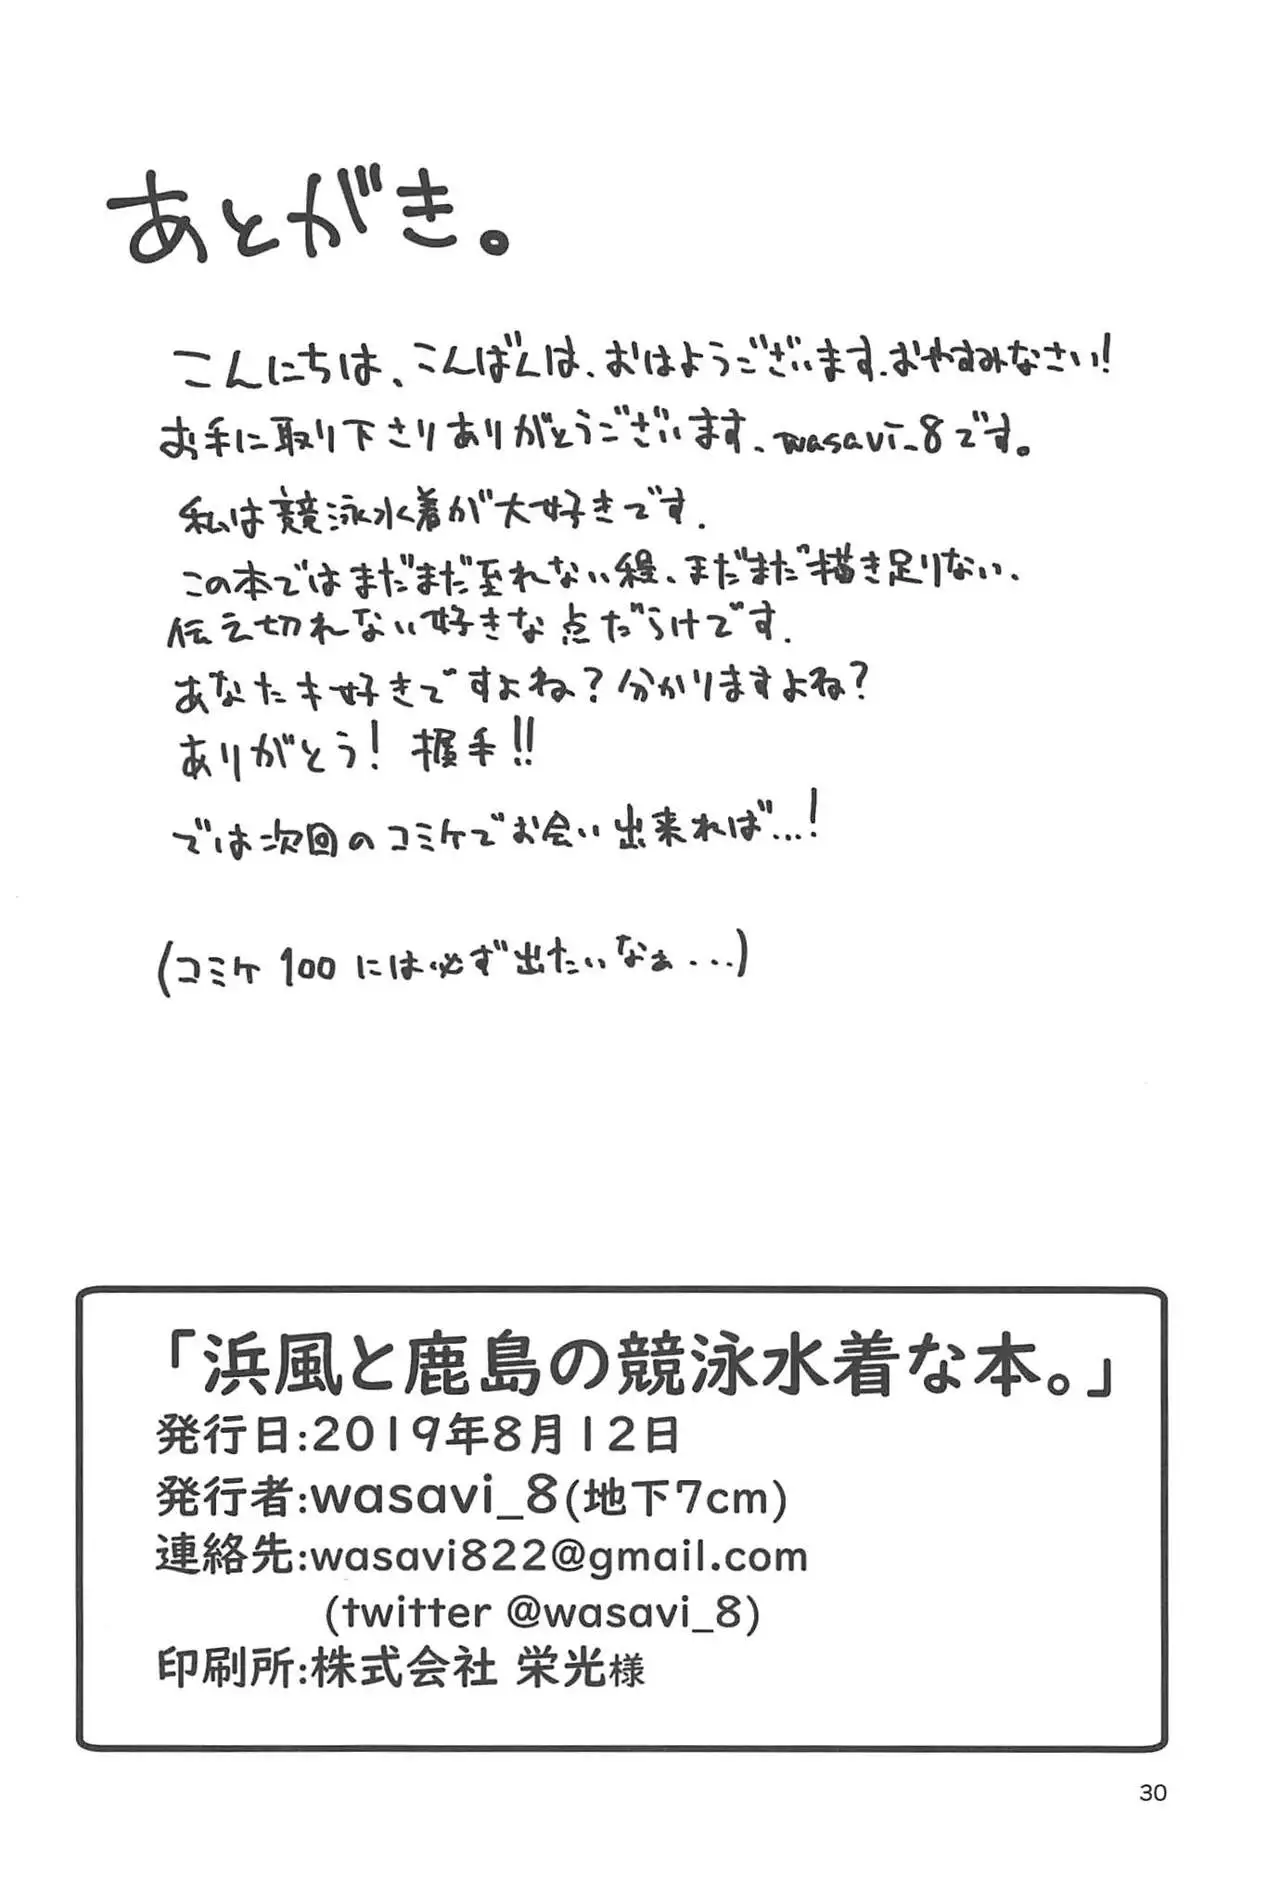 あとがき。
こんにちは、こんばんは、おはようございます、おやすみなさい!
お手に取り下さりありがとうございます、wasavi_8です。
私は競泳水着が大好きです。
この本ではまだまだ至れない程、まだまだ描き足りない、
伝え切れない好きな点だらけです。
あなたも好きですよね?分かりますよね?
ありがとう!握手!!
では次回のコミケでお会い出来れば…!
(コミケ100には必ず出たいなぁ...)
「浜風と鹿島の競泳水着な本。」
発行日:2019年8月12日
発行者:wasavi_8(地下7cm)
連絡先:wasavi822@gmail.com
(twitter @wasavi_8)
印刷所:株式会社 栄光様
30